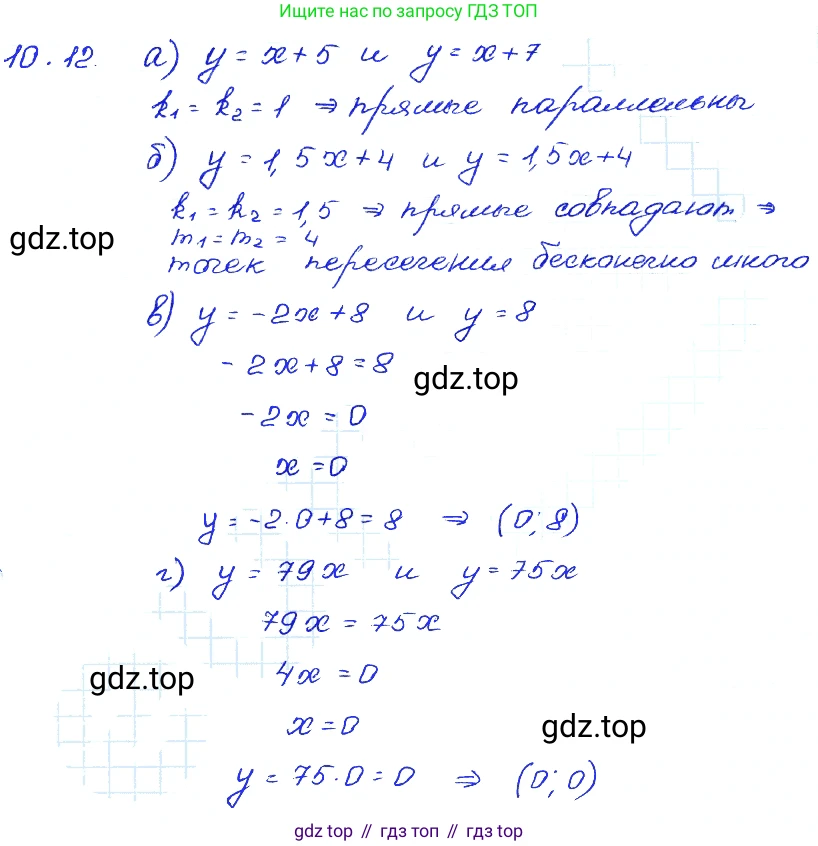 Ищите нас по запросу ГДЗ ТОП
10.12. а) y = x + 5 и y = x + 7
k₁ = k₂ = 1 ⇒ прямые параллельны
б) y = 1,5x + 4 и y = 1,5x + 4
k₁ = k₂ = 1,5 ⇒ прямые совпадают ⇒
gdz.top
m₁ = m₂ = 4
точек пересечения бесконечно много
в) y = -2x + 8 и y = 8
-2x + 8 = 8
gdz.top
-2x = 0
x = 0
y = -2·0 + 8 = 8 ⇒ (0; 8)
г) y = 79x и y = 75x
79x = 75x
4x = 0
gdz.top
x = 0
gdz.top
y = 75·0 = 0 ⇒ (0; 0)
gdz.top // гдз топ // gdz.top